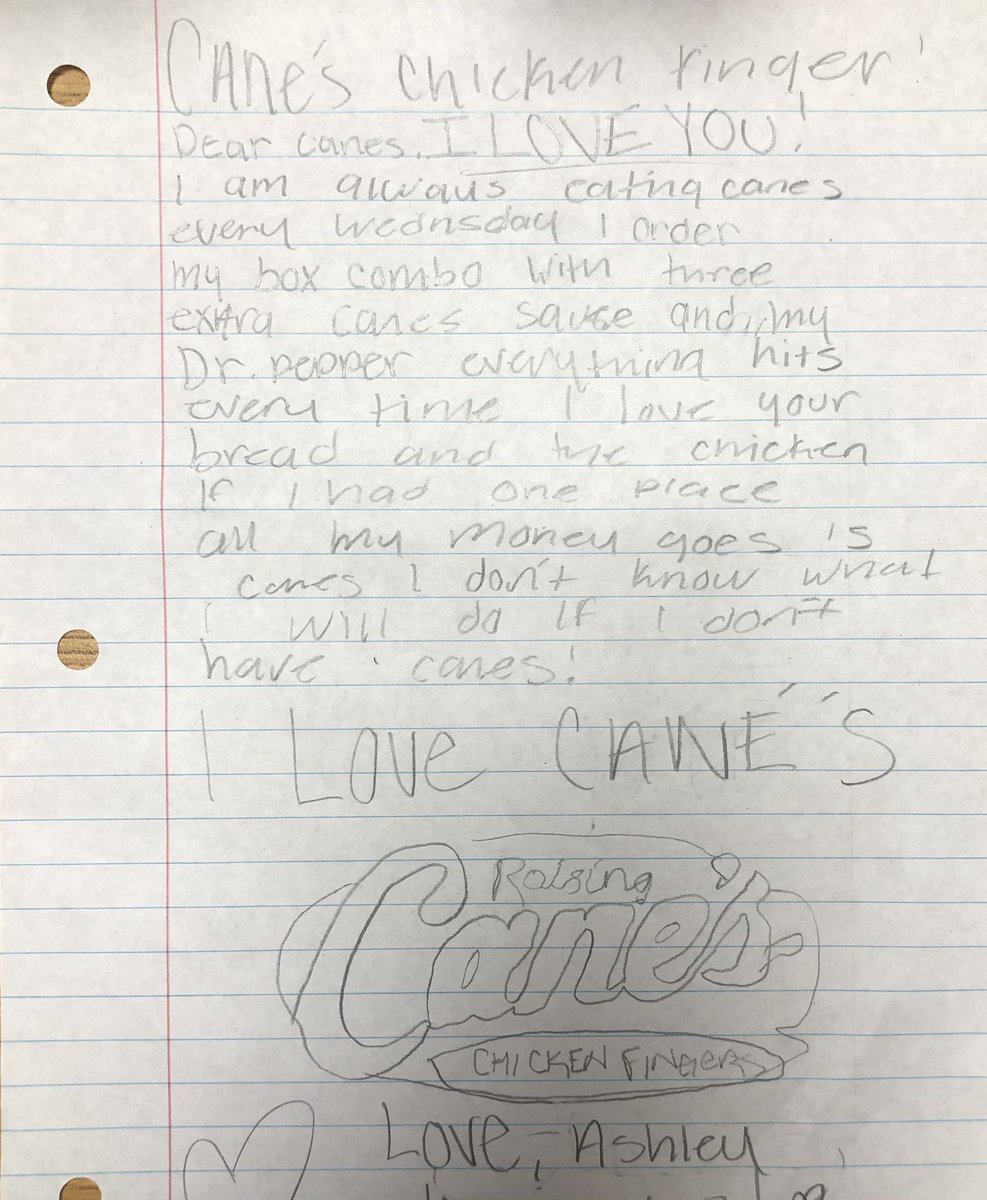 CANE's chicken finger!
Dear canes, I LOVE YOU!
I am always eating canes
every wednsday I order
my box combo with three
extra canes sause and my
Dr. pepper everything hits
every time I love your
bread and the chicken
If I had one place
all my money goes is
canes I don't know what
i will do If I don't
have canes!
I LOVE CANE'S
Raising
Cane's
CHICKEN FINGERS
LOVE, Ashley